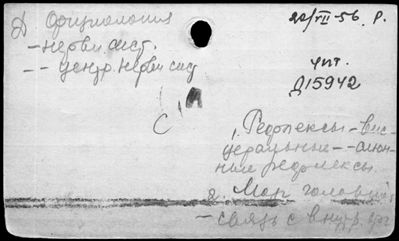 Физиология
20/VII-56. Р.
- нервн. сист.
-- центр. нервн сист
Чит.
Д15942
С
1. Рефлексы - вис-
церальные -- слюн-
ные рефлексы.
2. Мозг головной,
- связь с внутр. орг